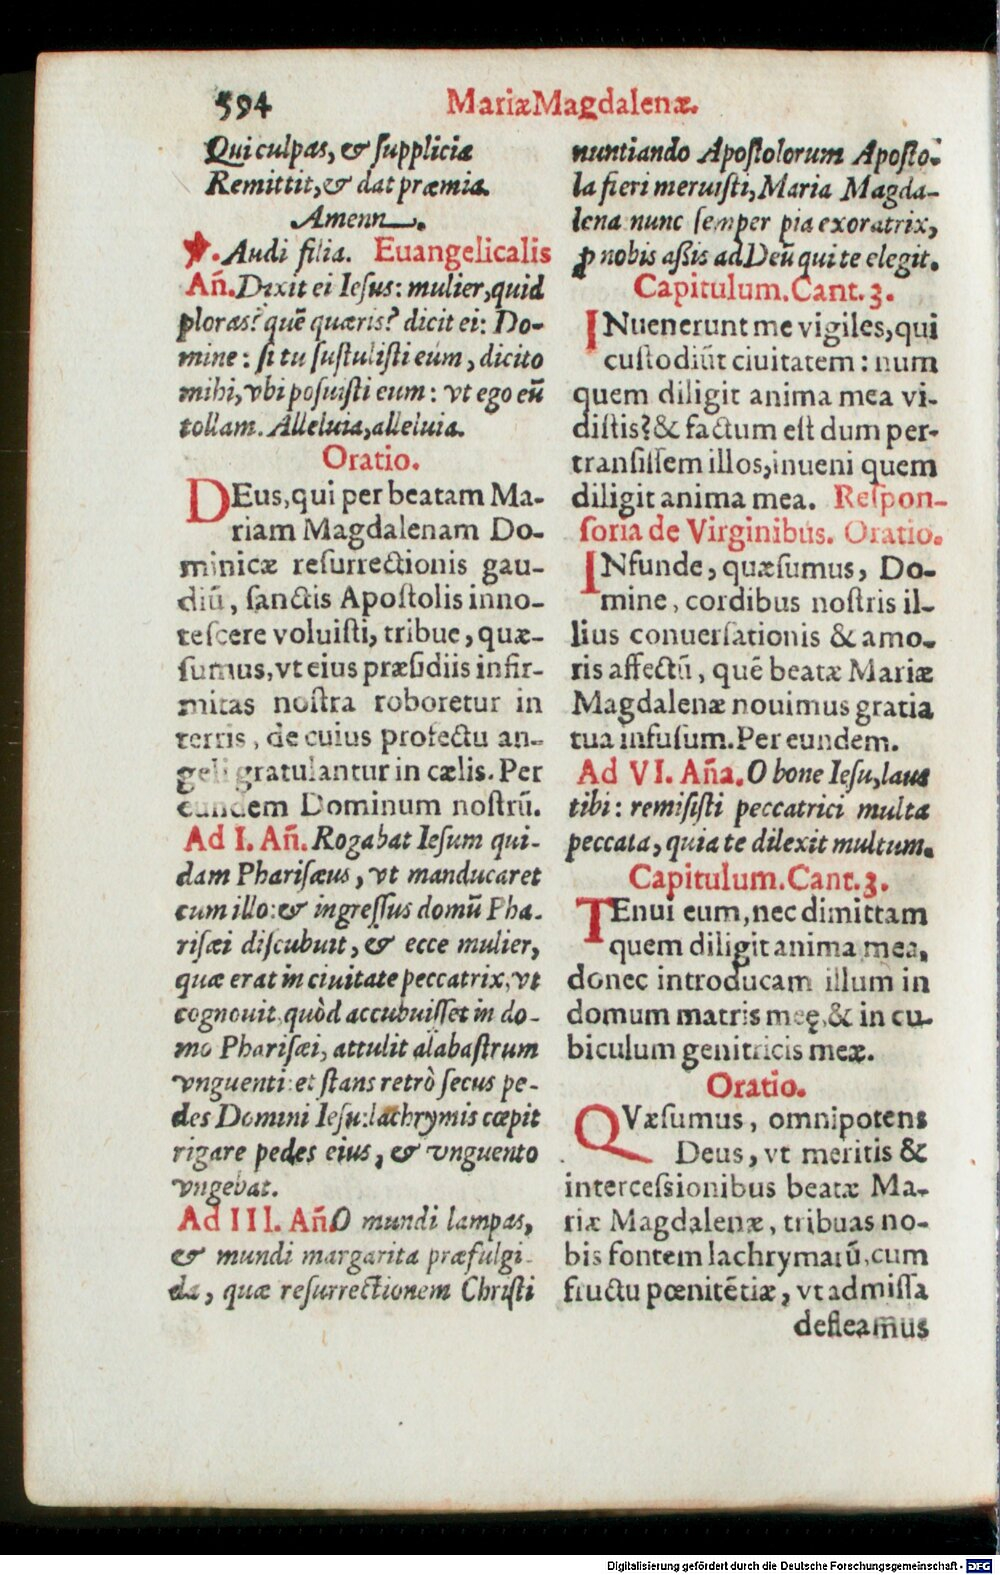 594
Mariæ Magdalenæ.
Qui culpas, & ſupplicia
Remittit, & dat præmia.
Amenn.
℣. Audi filia. Euangelicalis
Añ. Dixit ei Ieſus: mulier, quid
ploras? quē quæris? dicit ei: Do-
mine: ſi tu ſuſtuliſti eum, dicito
mihi, vbi poſuiſti eum: vt ego eū
tollam. Alleluia, alleluia.
Oratio.
DEus, qui per beatam Ma-
riam Magdalenam Do-
minicæ reſurrectionis gau-
diū, ſanctis Apoſtolis inno-
teſcere voluiſti, tribue, quæ-
ſumus, vt eius præſidiis infir-
mitas noſtra roboretur in
terris, de cuius profectu an-
geli gratulantur in cælis. Per
eundem Dominum noſtrū.
Ad I. Añ. Rogabat Ieſum qui-
dam Phariſæus, vt manducaret
cum illo: & ingreſſus domū Pha-
riſæi diſcubuit, & ecce mulier,
quæ erat in ciuitate peccatrix, vt
cognouit, quòd accubuiſſet in do-
mo Phariſæi, attulit alabaſtrum
vnguenti: et ſtans retrò ſecus pe-
des Domini Ieſu: lachrymis cœpit
rigare pedes eius, & vnguento
vngebat.
Ad III. Añ O mundi lampas,
& mundi margarita præfulgi-
da, quæ reſurrectionem Chriſti
nuntiando Apoſtolorum Apoſto-
la fieri meruiſti, Maria Magda-
lena nunc ſemper pia exoratrix,
ꝓ nobis aſsis ad Deū qui te elegit.
Capitulum. Cant. 3.
INuenerunt me vigiles, qui
cuſtodiūt ciuitatem: num
quem diligit anima mea vi-
diſtis? & factum eſt dum per-
tranſiſſem illos, inueni quem
diligit anima mea. Reſpon-
ſoria de Virginibus. Oratio.
INfunde, quæſumus, Do-
mine, cordibus noſtris il-
lius conuerſationis & amo-
ris affectū, quē beatæ Mariæ
Magdalenæ nouimus gratia
tua infuſum. Per eundem.
Ad VI. Aña. O bone Ieſu, laus
tibi: remiſiſti peccatrici multa
peccata, quia te dilexit multum.
Capitulum. Cant. 3.
TEnui eum, nec dimittam
quem diligit anima mea,
donec introducam illum in
domum matris meę, & in cu-
biculum genitricis meæ.
Oratio.
QVæſumus, omnipotens
Deus, vt meritis &
interceſsionibus beatæ Ma-
riæ Magdalenæ, tribuas no-
bis fontem lachrymarū, cum
fructu pœnitētiæ, vt admiſſa
defleamus
Digitalisierung gefördert durch die Deutsche Forschungsgemeinschaft - DFG